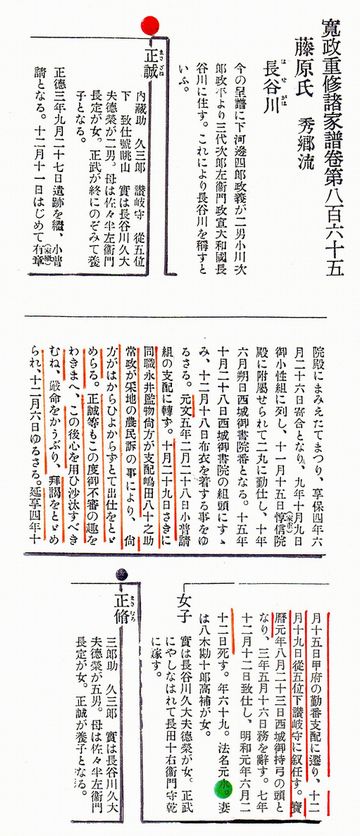 寛政重修諸家譜卷第八百六十五
藤原氏 秀郷流
長谷川
はせがは
今の呈譜に下河邊四郎政義が二男小川次
郎政平より三代次郎左衞門政宣大和國長
谷川に住す。これにより長谷川を稱すと
いふ。
正誠
まさざね
内藏助 久三郎 讃岐守 從五位
下 致仕號眺山 實は長谷川久大
夫德榮が二男。母は佐々半左衞門
長定が女。正武が終にのぞみて養
子となる。
正德三年九月二十七日遺跡を繼、小普
請となる。十二月十一日はじめて有章
(家繼)
院殿にまみえたてまつり、享保四年六
月二十六日寄合となり、九年十月九日
御小性組に列し、十一月十五日惇信院
(家重)
殿に附屬せられて二丸に勤仕し、十年
六月朔日西城御書院番となる。十五年
十月二十八日西城御書院の組頭にすゝ
み、十二月十八日布衣を着する事をゆ
るさる。元文五年二月二十八日小普請
組の支配に轉ず。十月二十九日さきに
同職永井監物尙方が支配嶋田八十之助
常政が采地の農民訴の事により、尙
方がはからひよからずとて出仕をとゞ
めらる。正誠等もこの度御不審の趣を
わきまへ、この後心を用ひ沙汰すべき
むね、嚴命をかうぶり、拜謁をとゞめ
られ、十二月六日ゆるさる。延享四年十
月十五日甲府の勤番支配に遷り、十二
月十九日從五位下讃岐守に叙任す。寶
曆元年八月二十三日西城御持弓の頭と
なり、三年五月十六日務を辭す。七年
十二月十二日致仕し、明和元年六月二
十二日死す。年六十九。法名元水。妻
は八木勘十郎高補が女。
女子
實は長谷川久大夫德榮が女。正誠
にやしなはれて長田十右衞門守乾
に嫁す。
正脩
まさむろ
三郎助 久三郎 實は長谷川久大
夫德榮が五男。母は佐々半左衞門
長定が女。正誠が養子となる。